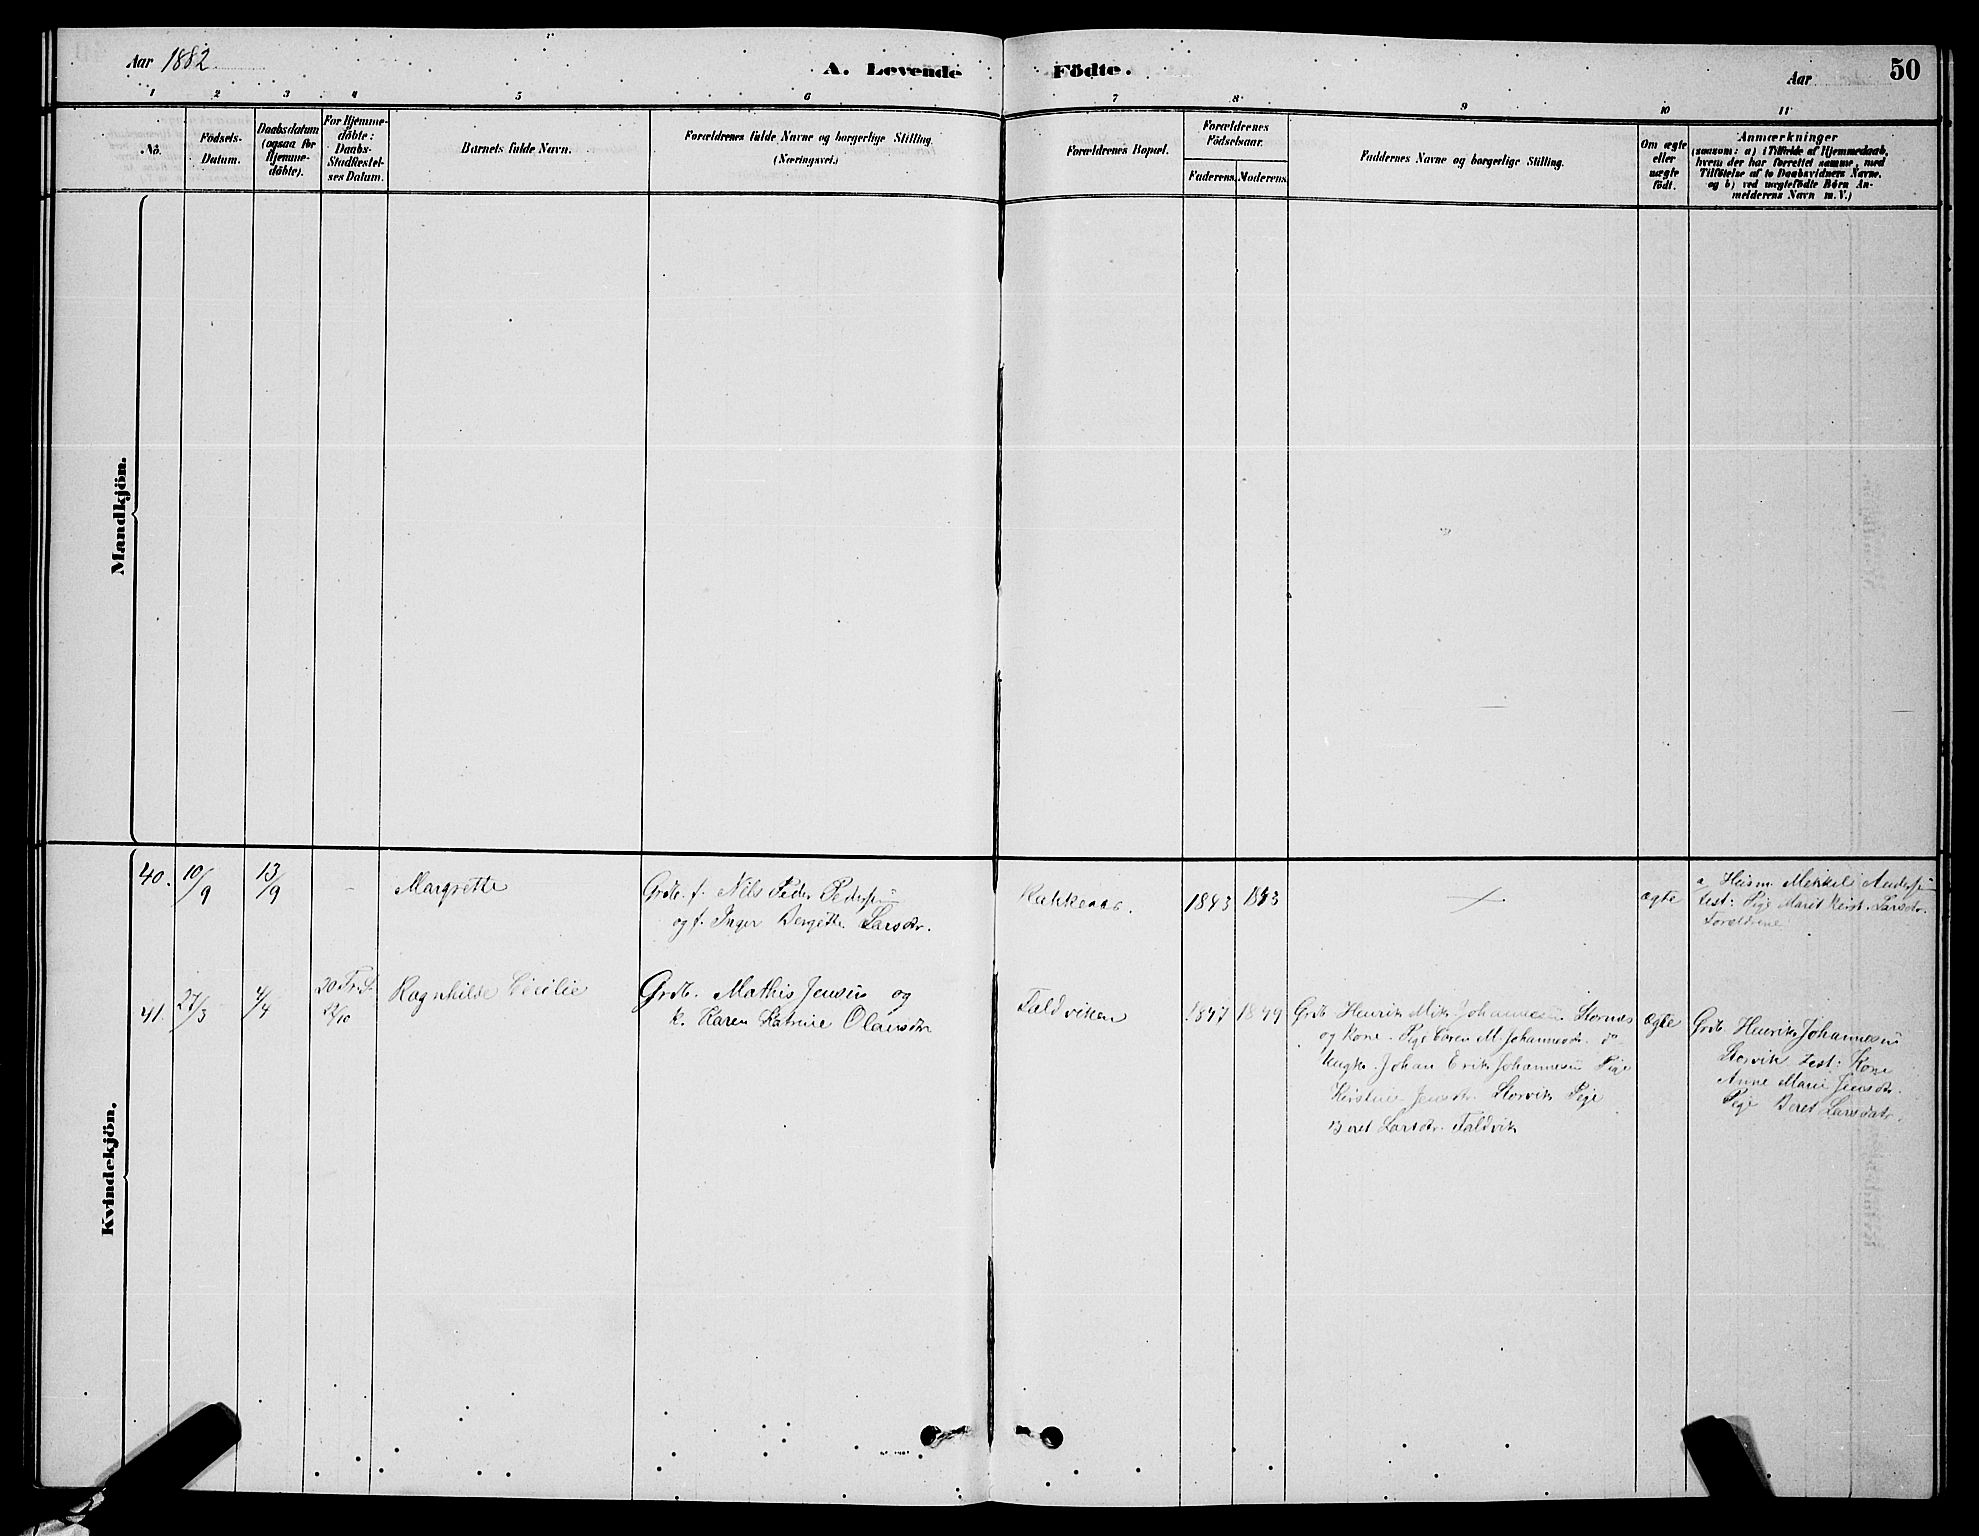 Aar 1882
A. Levende Födte.
Aar
50
1 2 3 4 5 6 7 8 9 10 11
No.
Födsels-
Datum.
Daabsdatum
(ogsaa for
Hjemme-
döbte).
For Hjemme-
döbte:
Daabs-
Stadfestel-
ses Datum.
Barnets fulde Navn.
Forældrenes fulde Navne og borgerlige Stilling.
(Næringsvei.)
Forældrenes Bopæl.
Forældrenes
Födselsaar.
Faderens. Moderens.
Faddernes Navne og borgerlige Stilling.
Om ægte
eller
uægte
födt.
Anmærkninger
(saasom: a) i Tilfælde af Hjemmedaab,
hvem der har forrettet samme, med
Tilföielse af to Daabsvidners Navne.
og b) ved uægtefödte Börn An-
melderens Navn m. V.)
Mandkjön.
Kvindekjön.
40. 10/9 13/9 -
Margrette
Grdb. f. Nils Peder Pedersen
og f. Inger Bergitte Larsdtr.
1843 1843
ægte
a, Husm. Mekkel Andersen
test: Pige Marit Kirst. Larsdtr.
Foreldrene
41. 27/3 4/4
20 Tr. S.
22/10
Ragnhilde Cecilie
Grdb. Mathis Jensen og
k. Karen Katrine Olausdtr
Faldviken
1847 1849
Grdb Henrik Mik Johannesen Stornes
og Kone. Pige Caren M. Johannesdtr. do
Ungk. Johan Erik Johannesen Pige
Kirstine Jensdtr. Storvik Pige
Beret Larsdtr. Faldvik
Ægte
Grdb. Henrik Johannesen
Storvik test: Kone
Anne Marie Jensdtr.
Pige Beret Larsdatr.